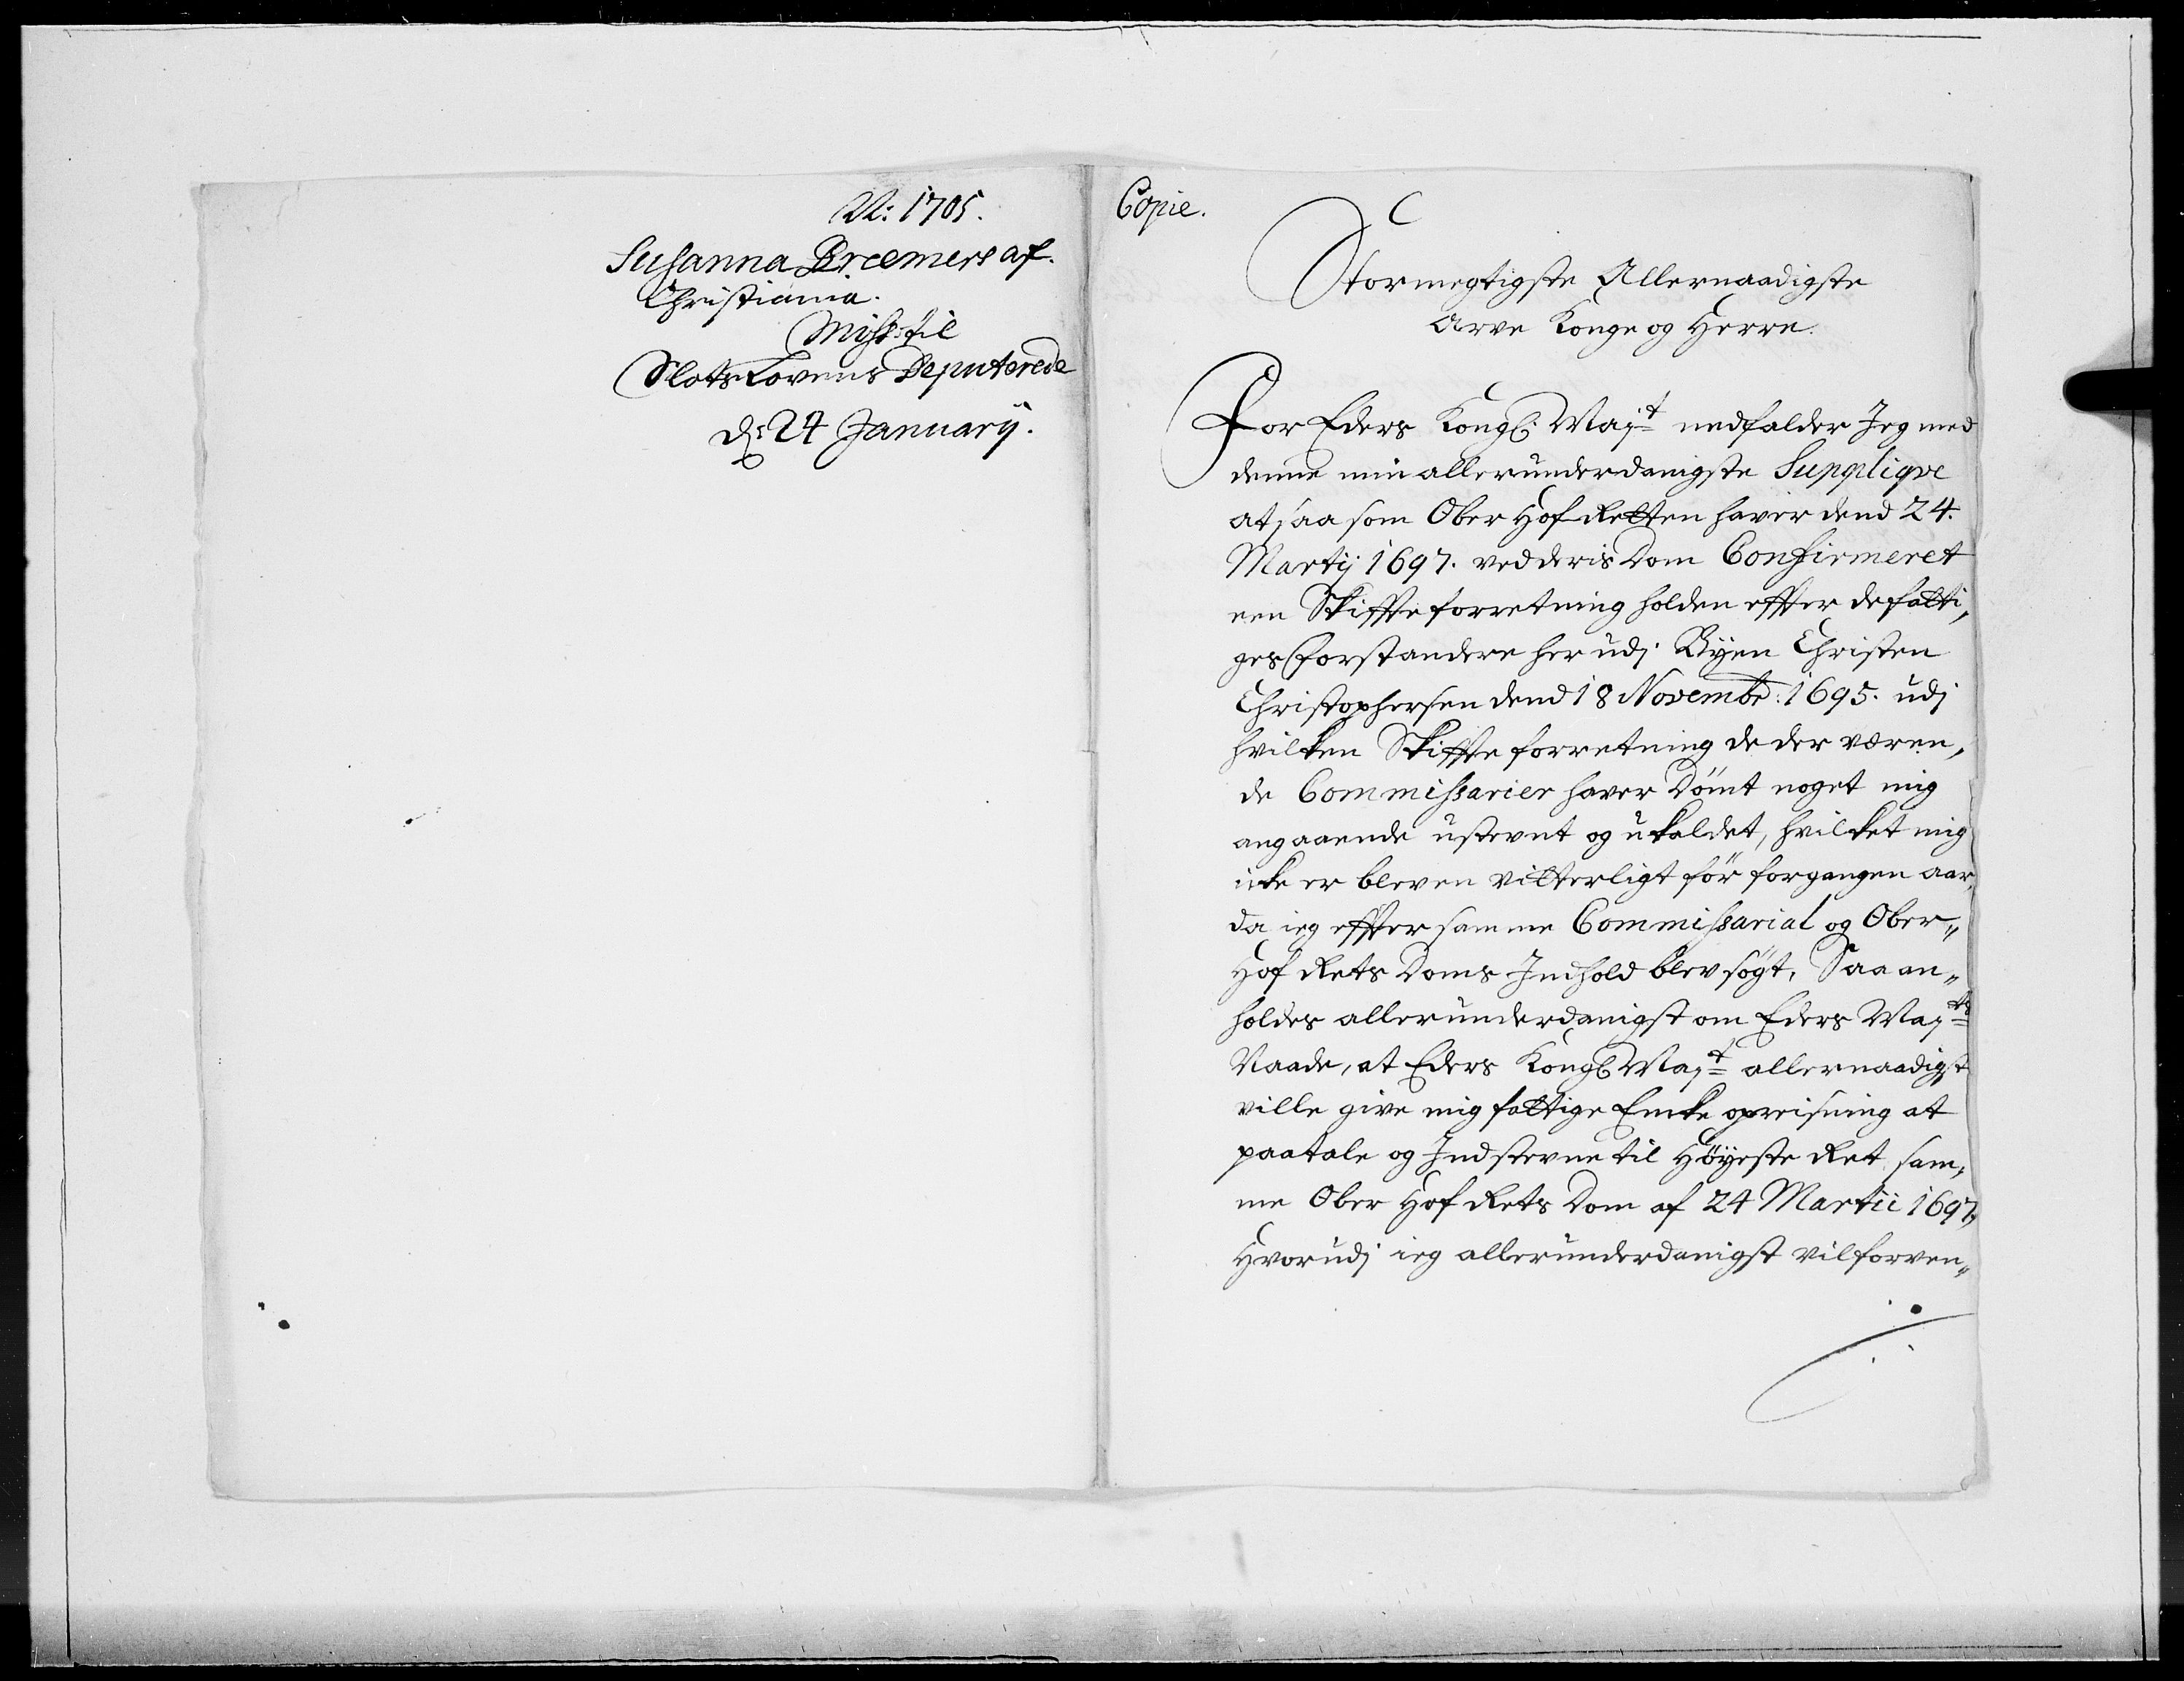 N: 1705.
Susanna Breemers af
Christiania.
Miss: til
Slots Lovens Deputerede
d: 24 Januarij.
Copie.
Stormegtigste Allernaadigste
Arve Konge og Herre
For Eders Kongl: Maj:t nedfalder Jeg med
denne min allerunderdanigste Supplique
at saa som Ober Hof Retten haver dend 24.
Martij 1697. ved deris Dom Confirmeret
een Skiffte forretning holden effter de fatti,,
ges Forstandere her udj Byen Christen
Christophersen dend 18 Novembr: 1695. udj
hvilken Skiffte forretning de der væren,,
de Commissarier haver Dömt noget mig
angaaende ustevnt og ukaldet, hvilket mig
icke er bleven vitterligt för forgangen aar,
da ieg effter samme Commissarial og Ober,,
Hof Rets Doms Indhold blev sögt, Saa an,,
holdes allerunderdanigst om Eders Maj:ts
Naade, at Eders Kongl Maj:t allernaadigst
ville give mig fattige Encke opreisning at
paatale og Indstevne til Höyeste Ret sam,,
me Ober Hof Rets Dom af 24 Martii 1697,
Hvorudj ieg allerunderdanigst vil forven,,